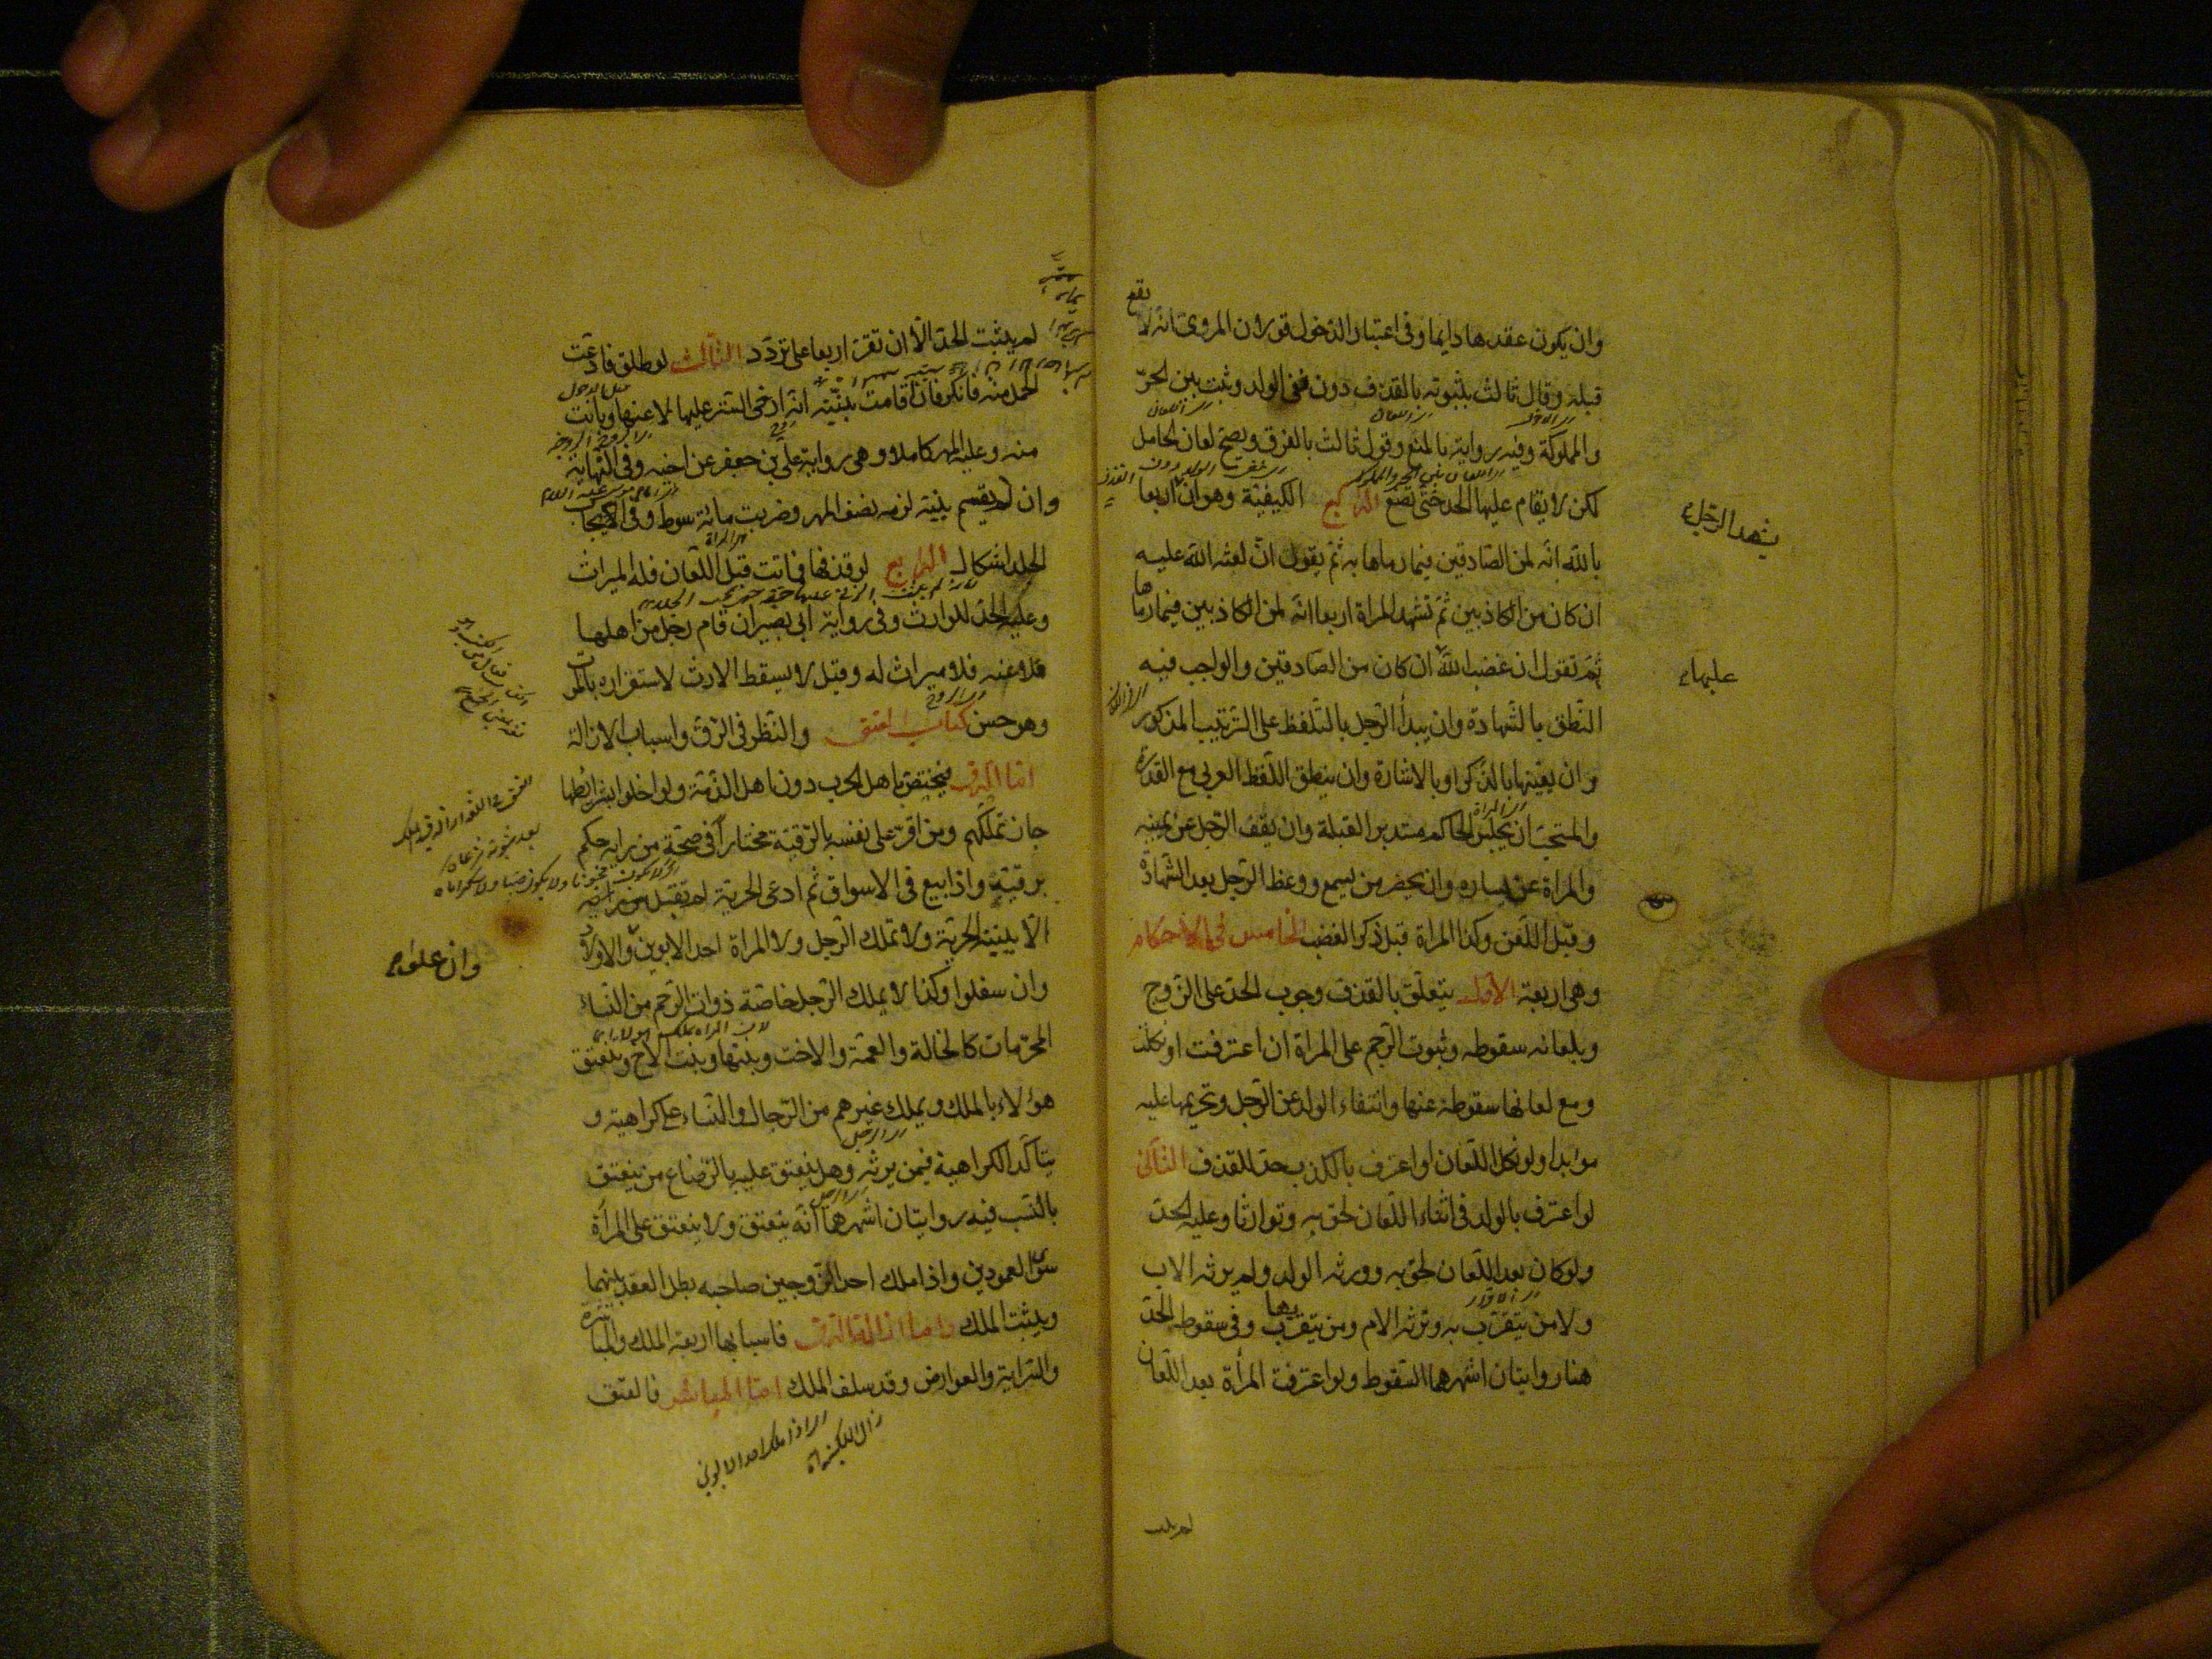 وان يكون عقدها دايما وفى اعتبار الدخول قولان المروى انه لا يقع
قبله وقال ثالث بثبوته بالقذف دون نفى الولد وثبت بين الحرّ
والمملوكة وفيه رواية بالمنع وقول ثالث بالفرق ويصح لعان الحامل
لكن لا يقام عليها الحد حتى تضع الرابع الكيفية وهو ان اربعا
يشهد الرجل
بالله انه لمن الصادقين فيما رماها به ثم يقول ان لعنة الله عليه
ان كان من الكاذبين ثم تشهد المراة اربعا انه لمن الكاذبين فيما رماها
ثم تقول ان غضب الله ان كان من الصادقين والواجب فيه
عليها
النطق بالشهادة وان يبدأ الرجل بالتلفظ على الترتيب المذكور
وان يعينها بالذكر او بالاشارة وان ينطق اللفظ العربى مع القدرة
والمستحب ان يجلس الحاكم مستدبر القبلة وان يقف الرجل عن يمينه
والمراة عن يساره وان يحضر من يسمع ووعظ الرجل بعد الشهادة
وقبل اللعن وكذا المراة قبل ذكر الغضب الخامس فى الاحكام
وهى اربعة الاول يتعلق بالقذف وجوب الحد على الزوج
وبلعانه سقوطه وثبوت الرجم على المراة ان اعترفت او نكلت
ومع لعانها سقوطه عنها وانتفاء الولد عن الرجل وتحريمها عليه
موبدا ولو نكل اللعان او اعترف بالكذب حد للقذف الثانى
لو اعترف بالولد فى اثناء اللعان لحق به وتوارثا وعليه الحد
ولو كان بعد اللعان لحق به وورثه الولد ولم يرثه الاب
ولا من يتقرب به وترثه الام ومن يتقرب بها وفى سقوط الحد
هنا روايتان اشهرهما السقوط ولو اعترفت المرأة بعد اللعان
لم يثبت
لم يثبت الحد الا ان تقر اربعا على تردد الثالث لو طلق فادعت
الحمل منه فانكر فان اقامت بينة انه ارخى الستر عليها لاعنها وبانت
منه وعليه المهر كاملا وهى رواية على بن جعفر عن اخيه وفى النهاية
وان لم يقيم بينة لزمه نصف المهر وضربت ماية سوط وفى ايجاب
الجلد اشكال الرابع لو قذفها فماتت قبل اللعان فله الميراث
وعليه الحد للوارث وفى رواية ابى بصير ان قام رجل من اهلها
فلاعنه فلا ميراث له وقيل لا يسقط الارث لاستقراره بالموت
وهو حسن كتاب العتق والنظر فى الرق واسباب الازالة
اما الرق فيختص باهل الحرب دون اهل الذمة ولو اخلوا بشرائطها
جاز تملكهم ومن اقر على نفسه بالرقية مختارا فى صحة من رايه حكم
برقيته واذا بيع فى الاسواق ثم ادعى الحرية لم تقبل منه
الا ببينة الحرية ولا تملك الرجل ولا المراة احد الابوين والاولاد
وان علوا
وان سفلوا وكذا لا يملك الرجل خاصة ذوات الرحم من النساء
المحرمات كالخالة والعمة والاخت وبنتها وبنت الاخ وينعتق
هؤلاء بالملك ويملك غيرهم من الرجال والنساء على كراهية و
يتاكد الكراهية فيمن يرثه وهل ينعتق عليه بالرضاع من ينعتق
بالنسب فيه روايتان اشهرهما انه ينعتق ولا ينعتق على المرأة
سوى العمودين واذا ملك احد الزوجين صاحبه بطل العقد بينهما
ويثبت الملك واما ازالة الرق فاسبابها اربعة الملك والمباشرة
والسراية والعوارض وقد سلف الملك اما المباشرة فالعتق